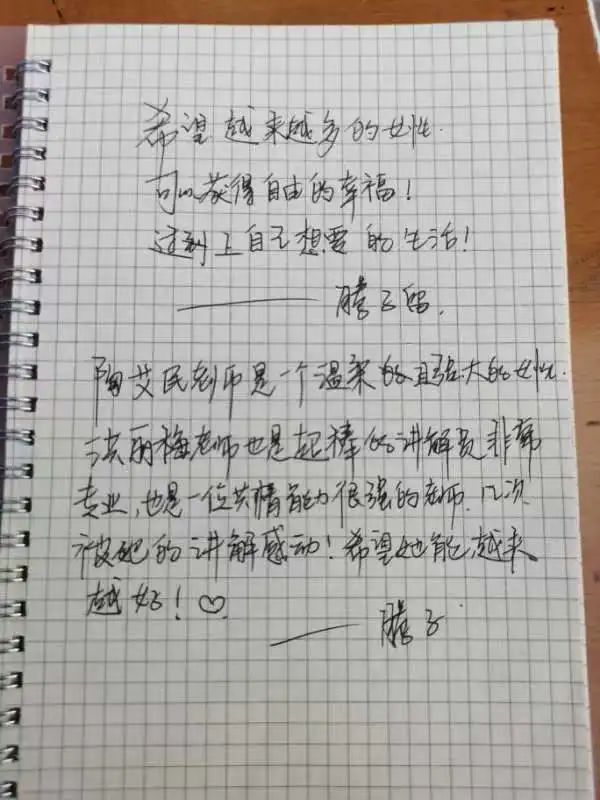 希望越来越多的女性.
可以获得自由的幸福!
过到上自己想要的生活!
—— 腾子
陶艾民老师是一个温柔的且强大的女性.
洪丽梅老师也是超棒的讲解员非常
专业,也是一位共情能力很强的老师.几次
被她的讲解感动!希望她能越来
越好!♡
—— 腾子